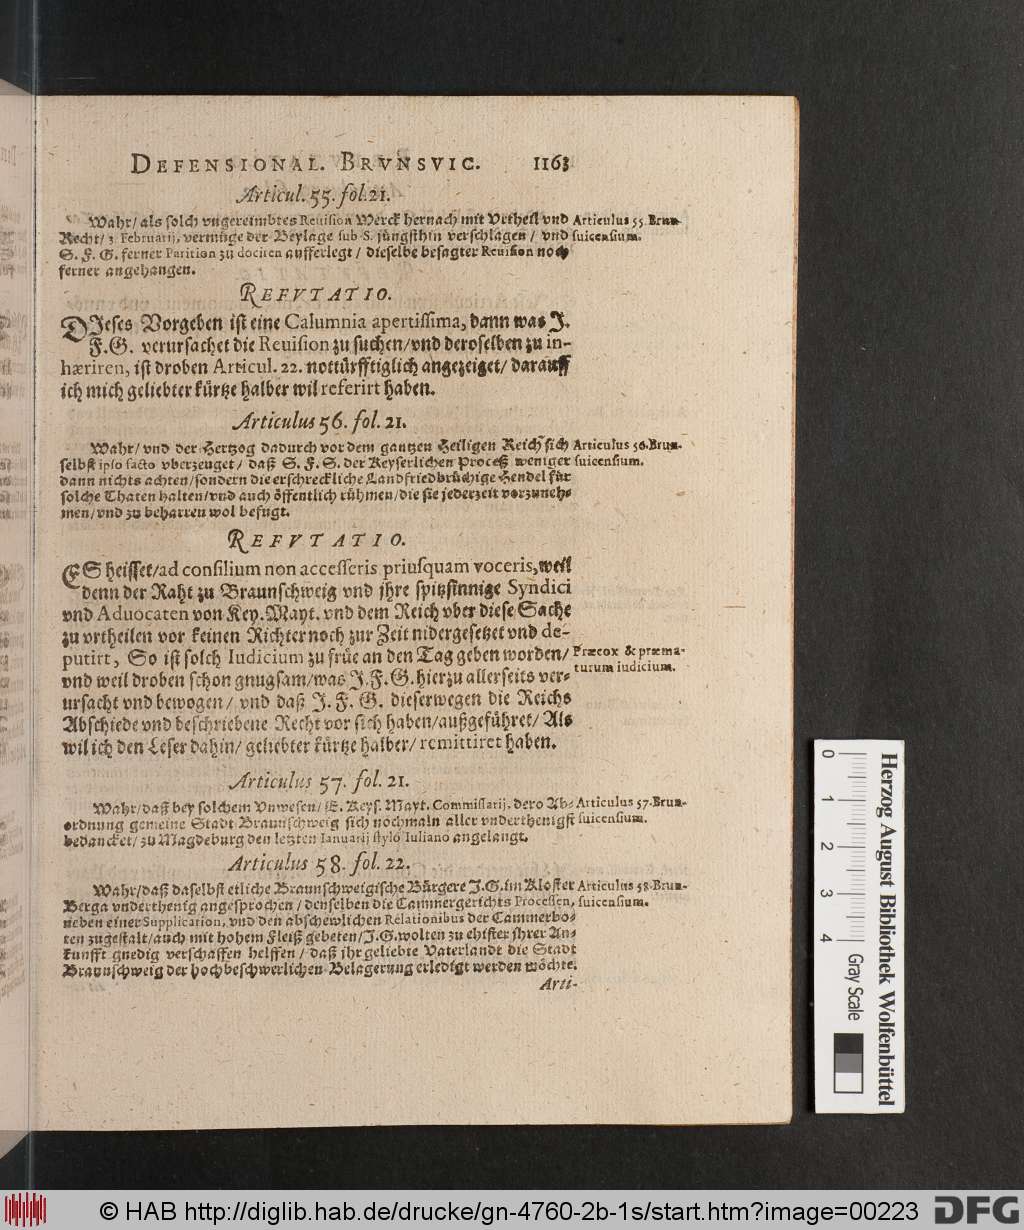 DEFENSIONAL. BRVNSVIC. 1163
Articul. 55. fol. 21.
Wahr/ als solch vngereimbtes Reuision Werck hernach mit Vrtheil vnd
Recht/ 3. Februarij, vermüge der Beylage sub S. jüngsthin verschlagen / vnd
S. F. G. ferner Parition zu dociren aufferlegt / dieselbe besagter Reuision noch
ferner angehangen.
Articulus 55. Brun-
suicensium.
REFVTATIO.
DIeses Vorgeben ist eine Calumnia apertissima, dann was J.
F.G. verursachet die Reuision zu suchen/ vnd deroselben zu in-
hæriren, ist droben Articul. 22. nottürfftiglich angezeiget/ darauff
ich mich geliebter kürtze halber wil referirt haben.
Articulus 56. fol. 21.
Wahr/ vnd der Hertzog dadurch vor dem gantzen Heiligen Reich sich
selbst ipso facto vberzeuget / daß S. F. S. der Keyserlichen Proceß weniger
dann nichts achten/ sondern die erschreckliche Landfriedbrüchige Hendel für
solche Thaten halten/ vnd auch öffentlich rühmen/ die sie jederzeit vorzuneh-
men/ vnd zu beharren wol befugt.
Articulus 56. Brun-
suicensium.
REFVTATIO.
ES heisset/ ad consilium non accesseris priusquam voceris, weil
denn der Raht zu Braunschweig vnd jhre spitzsinnige Syndici
vnd Aduocaten von Key. Mayt. vnd dem Reich vber diese Sache
zu vrtheilen vor keinen Richter noch zur Zeit nidergesetzet vnd de-
putirt, So ist solch Iudicium zu früe an den Tag geben worden/
vnd weil droben schon gnugsam/ was J. F. G. hierzu allerseits ver-
ursacht vnd bewogen / vnd daß J. F. G. dieserwegen die Reichs
Abschiede vnd beschriebene Recht vor sich haben/ außgeführet/ Als
wil ich den Leser dahin/ geliebter kürtze halber/ remittiret haben.
Præcox & præma-
turum iudicium.
Articulus 57. fol. 21.
Wahr/ daß bey solchem Vnwesen/ E. Keys. Mayt. Commissarij, dero Ab-
ordnung gemeine Stadt Braunschweig sich nochmaln aller vnderthenigst
bedancket/ zu Magdeburg den letzten Ianuarij stylo Iuliano angelangt.
Articulus 57. Brun-
suicensium.
Articulus 58. fol. 22.
Wahr/ daß daselbst etliche Braunschweigische Bürgere J. G. im Kloster
Berga vnderthenig angesprochen / denselben die Cammergerichts Processen,
neben einer Supplication, vnd den abschewlichen Relationibus der Cammerbo-
ten zugestalt/ auch mit hohem Fleiß gebeten/ J. G. wolten zu ehister jhrer An-
kunfft gnedig verschaffen helffen / daß jhr geliebte Vaterlandt die Stadt
Braunschweig der hochbeschwerlichen Belagerung erledigt werden möchte.
Articulus 58. Brun-
suicensium.
Arti-
0 1 2 3 4 Gray Scale
Herzog August Bibliothek Wolfenbüttel
© HAB http://diglib.hab.de/drucke/gn-4760-2b-1s/start.htm?image=00223 DFG